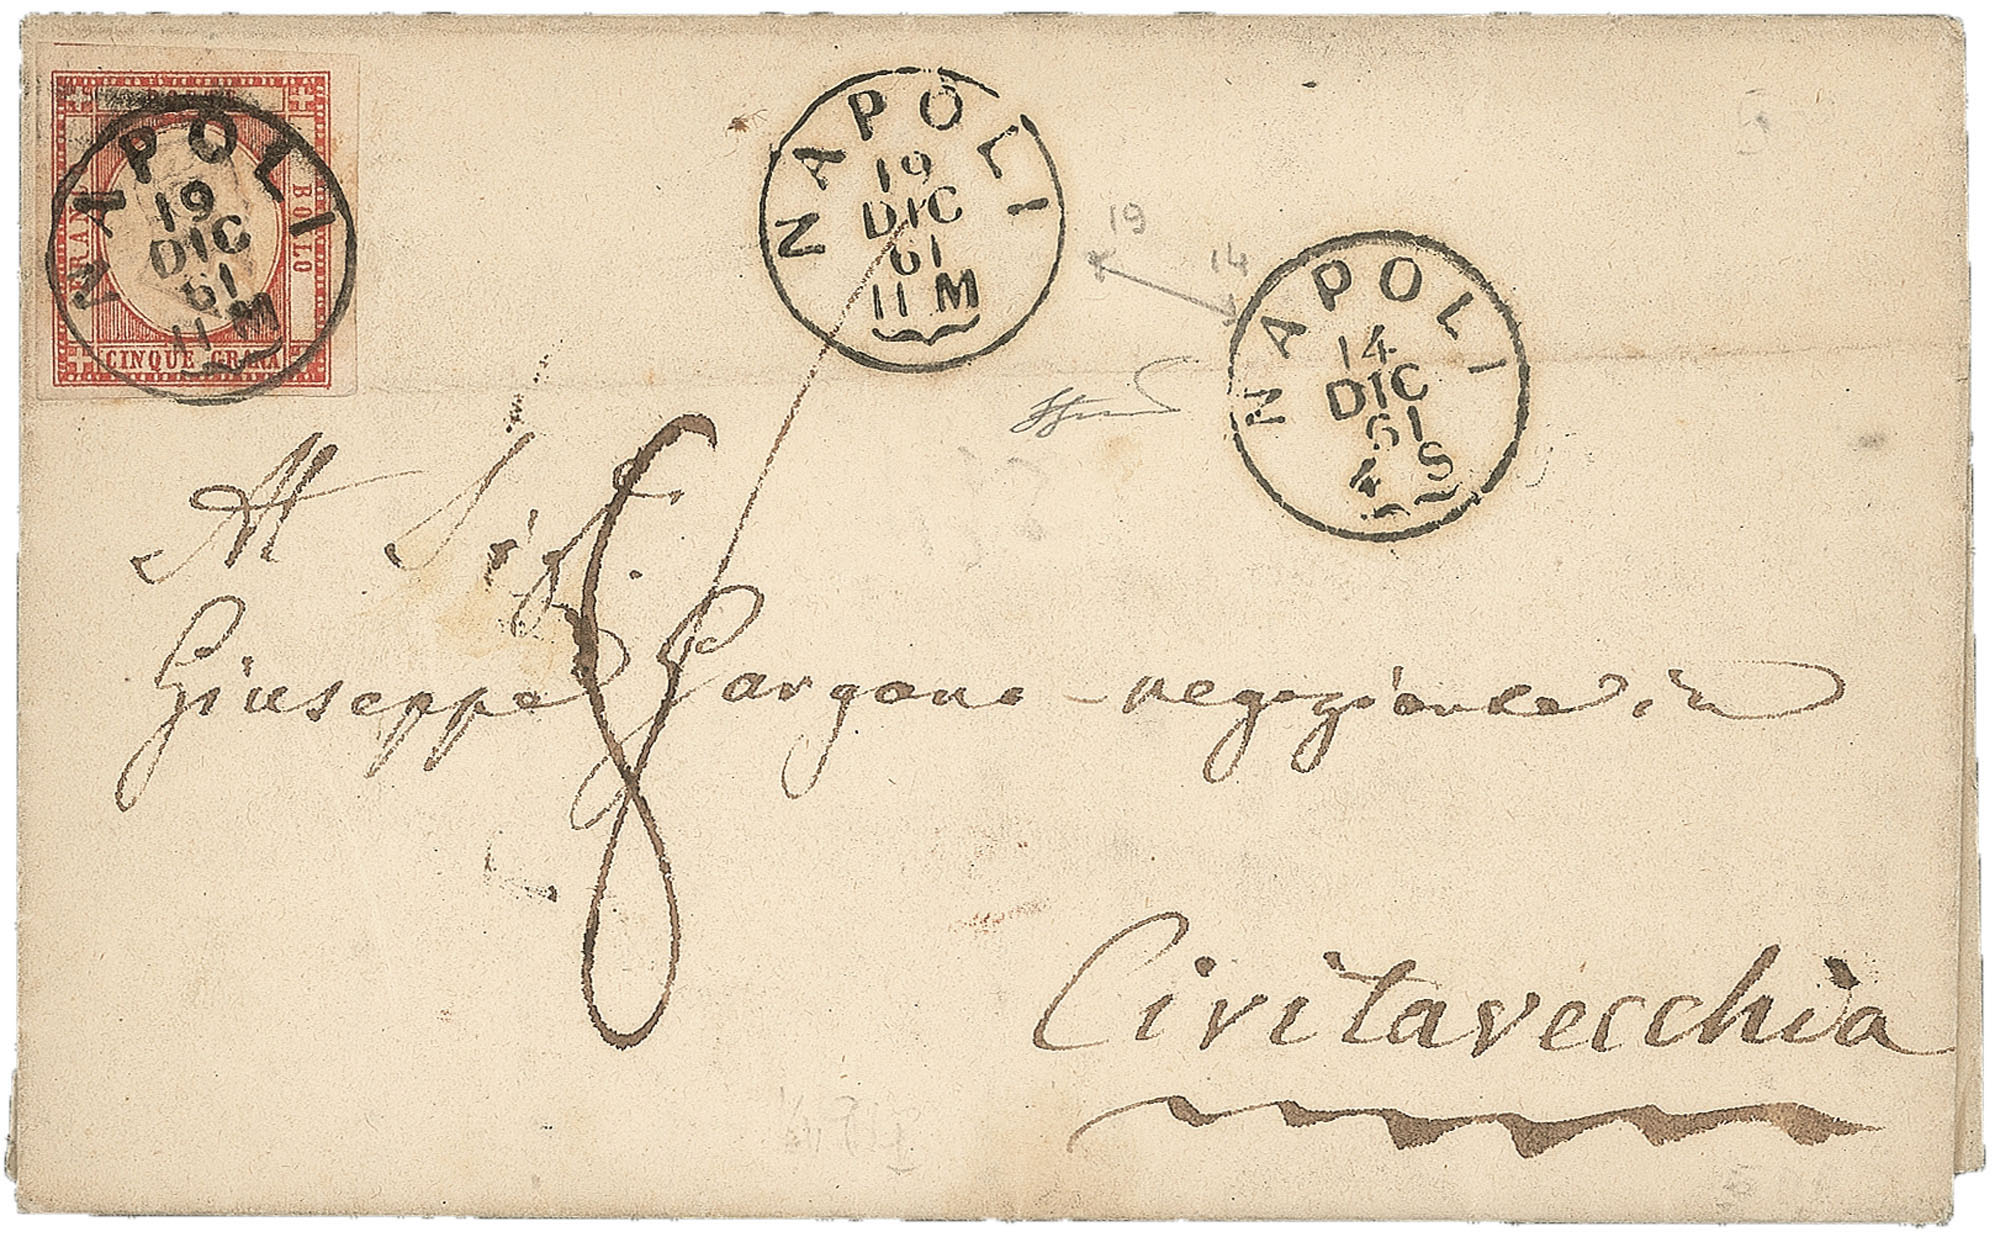 FRANCO
BOLLO
CINQUE GRANA
NAPOLI
19
DIC
61
11 M
NAPOLI
19
DIC
61
11 M
19
14
NAPOLI
14
DIC
61
4 S
Al Sig.
8
Giuseppe Gargano negoziante in
Civitavecchia